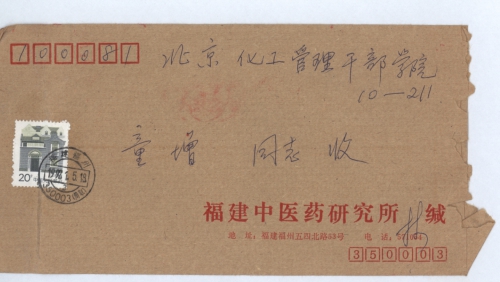 100081 北京 化工管理干部学院
10—211
童增 同志 收
20
福建福州
福建中医药研究所 缄
地 址：福建福州五四北路53号 电 话：
350003